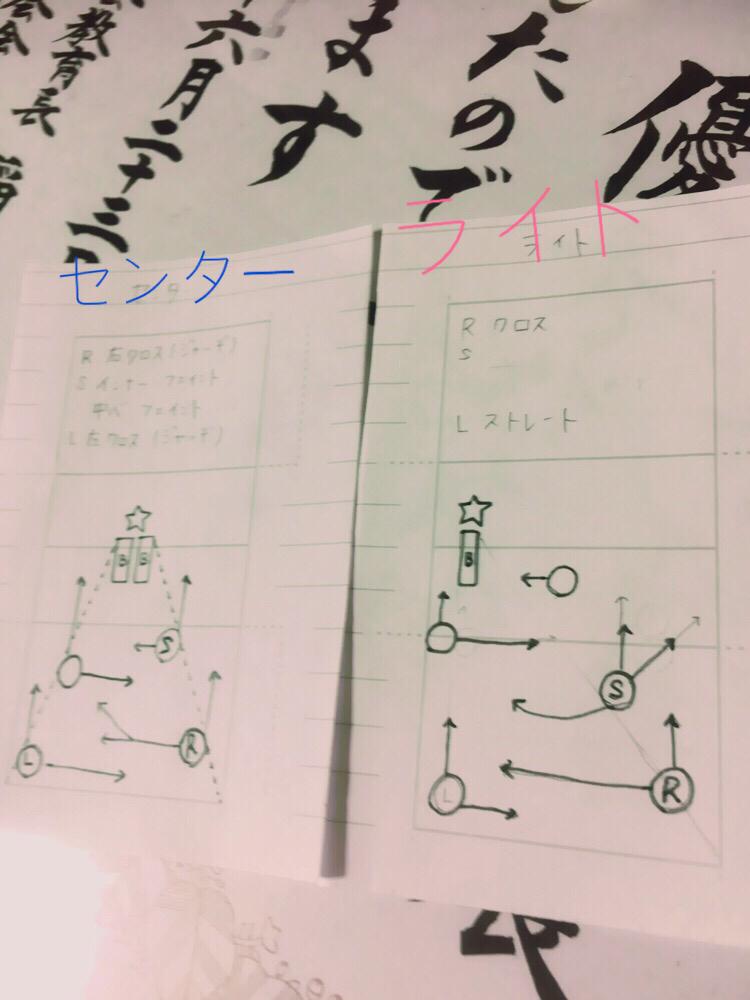 優
たので
ます
六月二十三
教育長
センター
R 右クロス(ジャッヂ)
S インナー フェイント
中バ フェイント
L 左クロス(ジャッヂ)
B B
S
L
R
ライト
ライト
R クロス
S
L ストレート
B
S
L
R